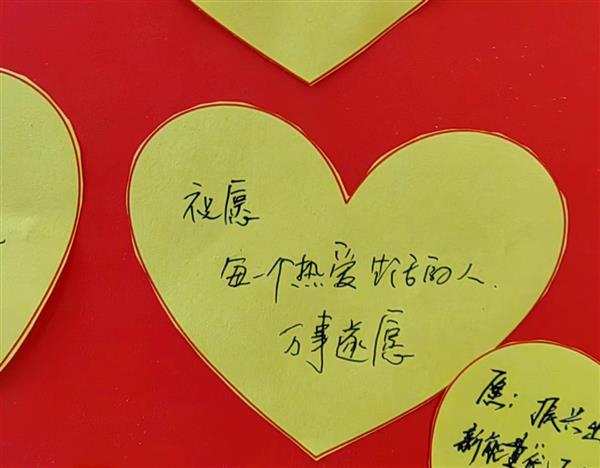 祝愿
每一个热爱生活的人.
万事遂愿
愿：振兴